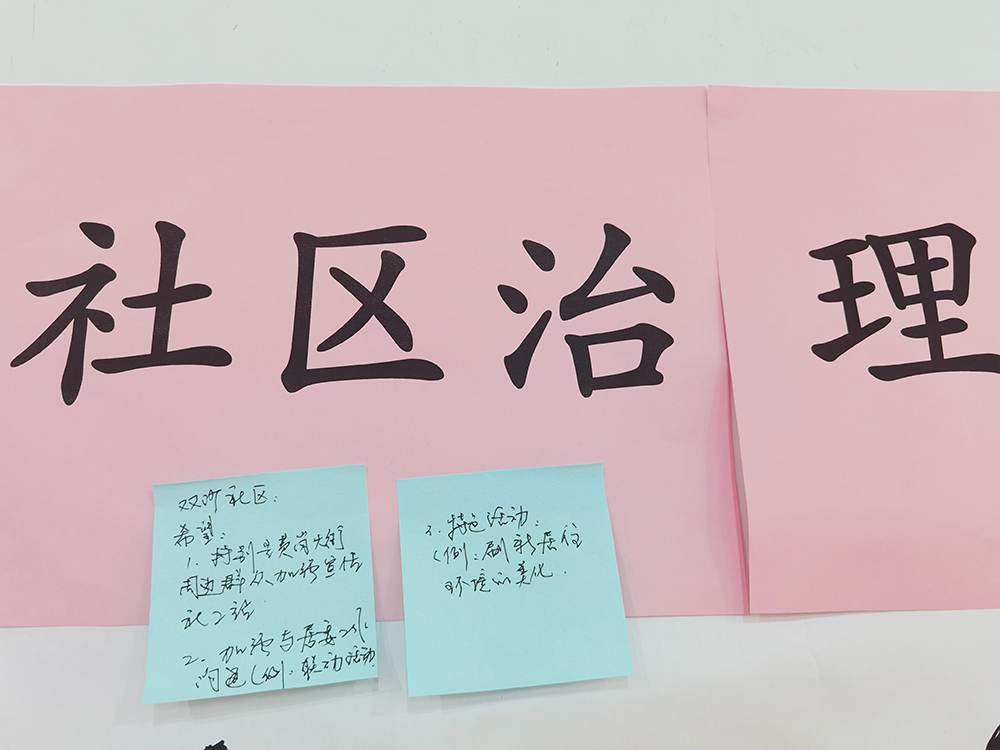 社区治理
双沙社区:
希望:
1. 特别是黄岗大街
周边群众,加强宣传
社工站.
2. 加强与居委工作
沟通(例:联动活动
3. 特色活动:
(例:刷新居住
环境的美化.